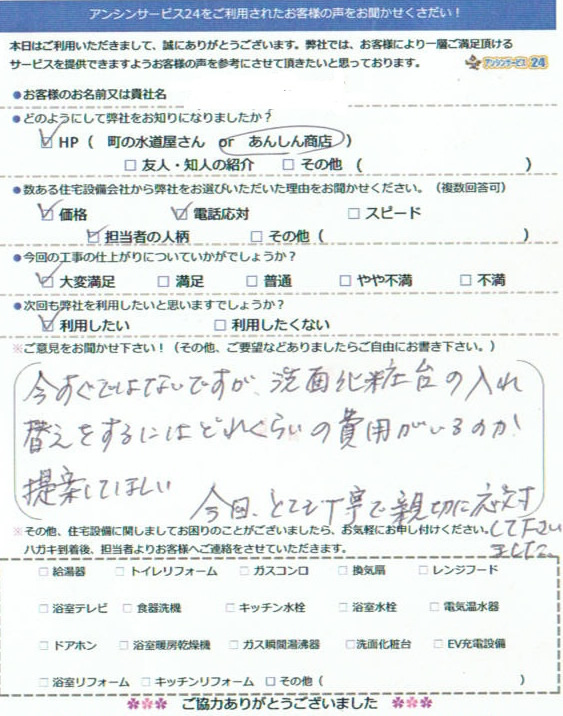 アンシンサービス24をご利用されたお客様の声をお聞かせください！
本日はご利用いただきまして、誠にありがとうございます。弊社では、お客様により一層ご満足頂ける
サービスを提供できますようお客様の声を参考にさせて頂きたいと思っております。 アンシンサービス24
●お客様のお名前又は貴社名
●どのようにして弊社をお知りになりましたか？
☑HP（ 町の水道屋さん or あんしん商店）
□友人・知人の紹介 □その他（ ）
●数ある住宅設備会社から弊社をお選びいただいた理由をお聞かせください。（複数回答可）
☑価格 ☑電話応対 □スピード
☑担当者の人柄 □その他（ ）
●今回の工事の仕上がりについていかがでしょうか？
☑大変満足 □満足 □普通 □やや不満 □不満
●次回も弊社を利用したいと思いますでしょうか？
☑利用したい □利用したくない
※ご意見をお聞かせ下さい！（その他、ご要望などありましたらご自由にお書き下さい。）
今すぐではないですが、洗面化粧台の入れ
替えをするにはどれくらいの費用がいるのか
提案してほしい 今回、とても丁寧で親切に応対
して下さい
ました。
※その他、住宅設備に関しましてお困りのことがございましたら、お気軽にお申し付けください。
ハガキ到着後、担当者よりお客様へご連絡をさせていただきます。
□給湯器 □トイレリフォーム □ガスコンロ □換気扇 □レンジフード
□浴室テレビ □食器洗機 □キッチン水栓 □浴室水栓 □電気温水器
□ドアホン □浴室暖房乾燥機 □ガス瞬間湯沸器 □洗面化粧台 □EV充電設備
□浴室リフォーム □キッチンリフォーム □その他（ ）
ご協力ありがとうございました